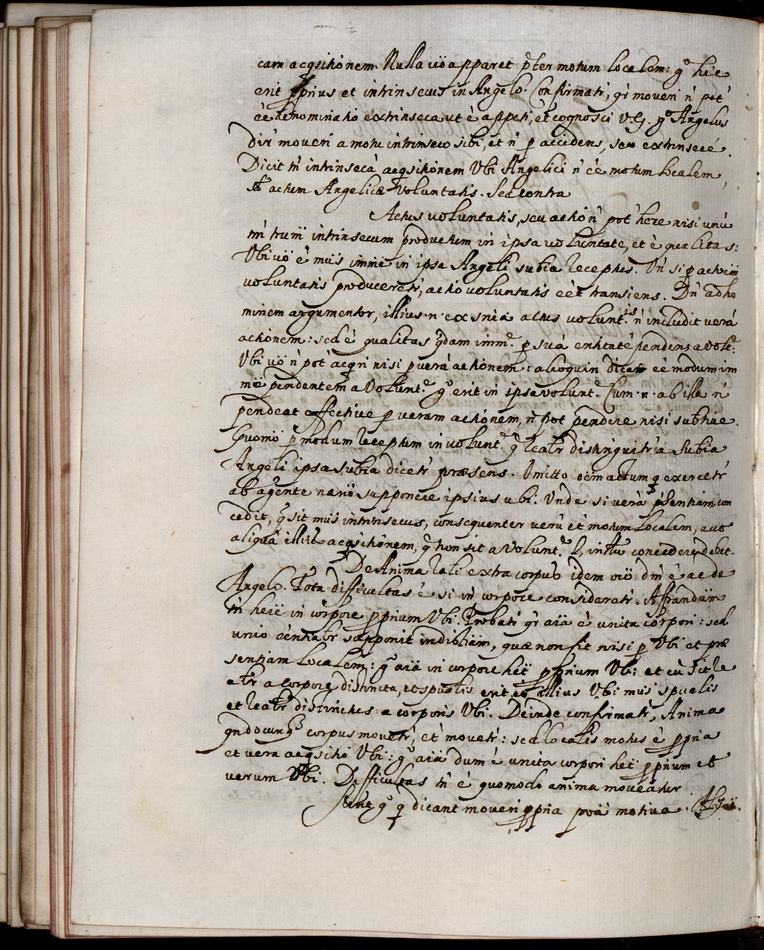 cam acqsitionem. Nulla uo apparet pter motum localem: g° hic
erit pprius et intrinsecus in Angelo. Confirmatr, qr moveri n pot
ee denominatio extrinseca ut e appeti, et cognosci v.g. g° Angelus
dir moveri a motu intrinseco sibi, et n p accidens, seu extrinsece.
Dicit tn intrinseca acqsitionem Vbi Angelici n ee motum localem,
sed actum Angelicæ Voluntatis. Sed contra
Actus voluntatis, seu actio n pot here nisi unu
tn trum intrinsecum productum in ipsa voluntate, et e qualitas:
Vbi uo e mus imme in ipsa Angeli subia receptus. Vn si p actum
voluntatis produceretr, actio voluntatis eet transiens. Dn ad ho
minem argumentor, illius n ex snia actus volunt.is n includit vera
actionem: sed e qualitas qdam imm.e p sua entitate pendens a vol.e:
Vbi uo n pot acqri nisi p vera actionem: alioquin dicam ee modum im
me pendentem a Volunt.e g° erit in ipsa volunt.e Cum n ab illa n
pendeat effective p veram actionem, n pot pendere nisi subtiue.
Quomo p modum receptum in volunt.e q realr distinguitr a subia
Angeli ipsa subia dicetr præsens. Omitto oem actum q exercetr
ab agente nario supponere ipsius ubi. Unde si vera psentiam con
cedit, q sit mus intrinsecus, consequenter veru et motum localem, aut
aliqua illius acqsitionem, q non sit a Volunt.e concedere debet.
De Anima rali extra corpus idem oio dm e ac de
Angelo. Tota difficultas e si in corpore consideratr. Affirandum
tn here in corpore pprium Vbi. Probatr qr aia e unita corpori: sed
unio centialr supponit indistiam, quæ non fit nisi p Vbi et præ
sentiam localem: g° aia in corpore het pprium Vbi: et cu sit re
alr a corpore distincta, et spualis erit et illius Vbi mus spualis
et realr distinctus a corporis Vbi. Deinde confirmatr, Anima
qndocunq corpus movetr, et movetr: sed localis motus e ppria
et vera acqsitio Vbi: g° aia dum e unita corpori het pprium et
verum Vbi. Difficultas tn e quomodo anima moveatur
Sunt q dicant moveri ppria motiua. Alij